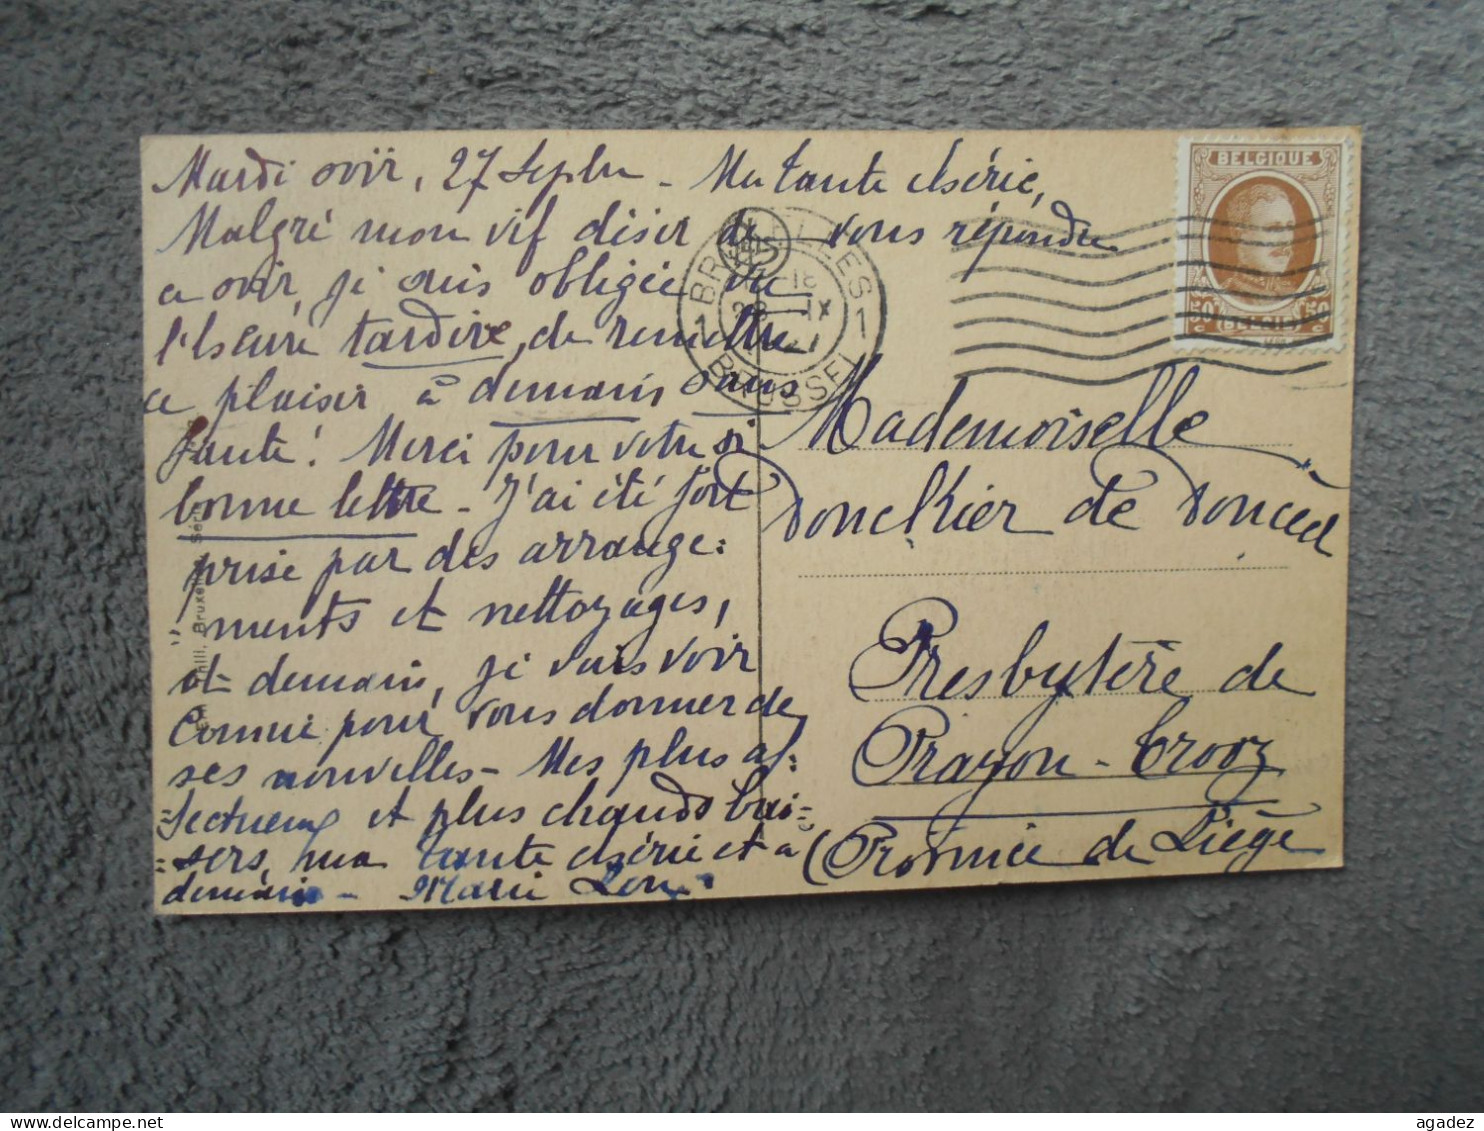 Mardi soir, 27 Septbre - Ma tante chérie,
Malgré mon vif désir de vous répondre
ce soir, je suis obligée vu
l'heure tardive, de remettre
ce plaisir à demain sans
faute! Merci pour votre si
bonne lettre - J'ai été fort
prise par des arrange=
"ments et nettoyages,
et demain, je vais voir
comme pour vous donner de
ses nouvelles - Mes plus af=
=fectueux et plus chauds bai=
=sers, ma tante chérie et à
demain - Marie Lou
BELGIQUE
50c 50c
(BELGIË)
BRUXELLES
1 1
18
28 IX
BRUSSEL
Mademoiselle
Donckier de Donceel
Presbytère de
Prayon-Trooz
(Province de Liège
agadez